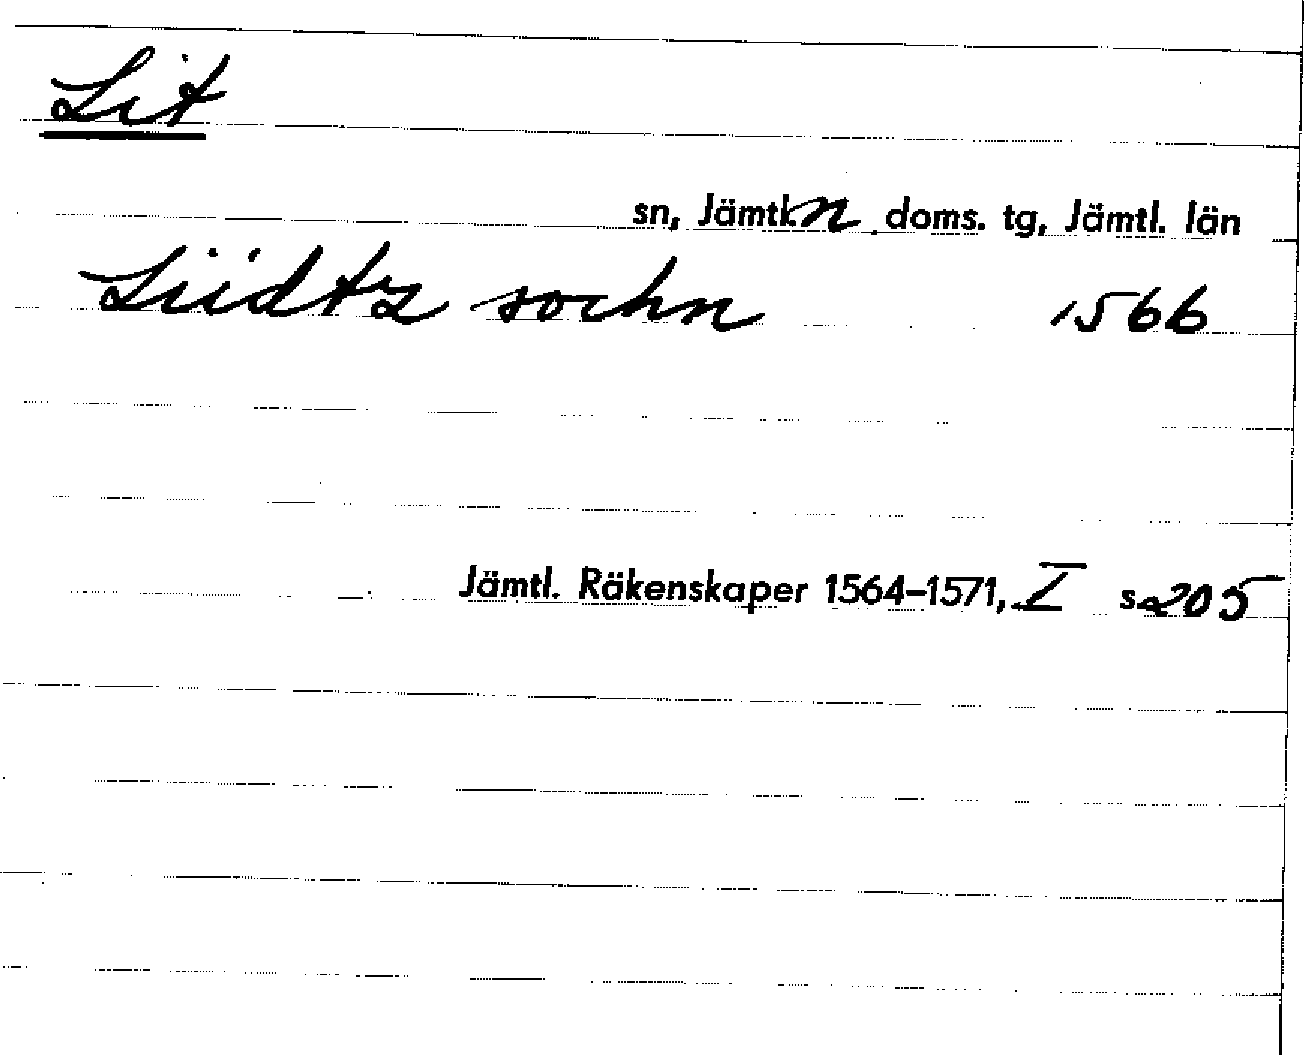 Lit
sn, Jämtl. n doms. tg, Jämtl. län
Liidtz sochn 1566
Jämtl. Räkenskaper 1564–1571, I s. 205